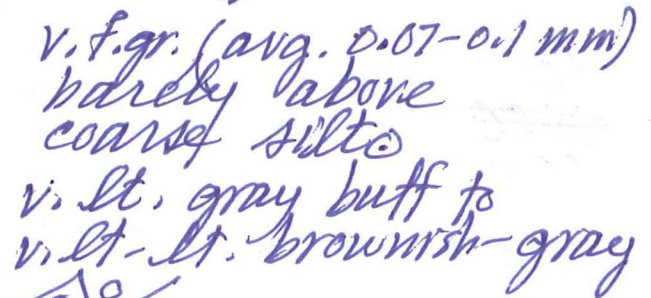 v.f.gr. (avg. 0.07-0.1 mm)
barely above
coarse silt.
v. lt. gray buff to
v. lt-lt. brownish-gray